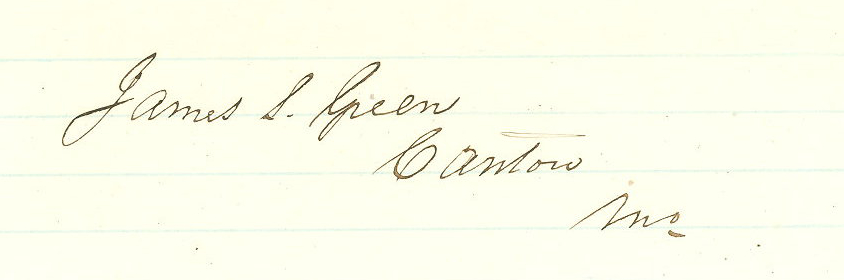 James S. Green
Canton
Mo